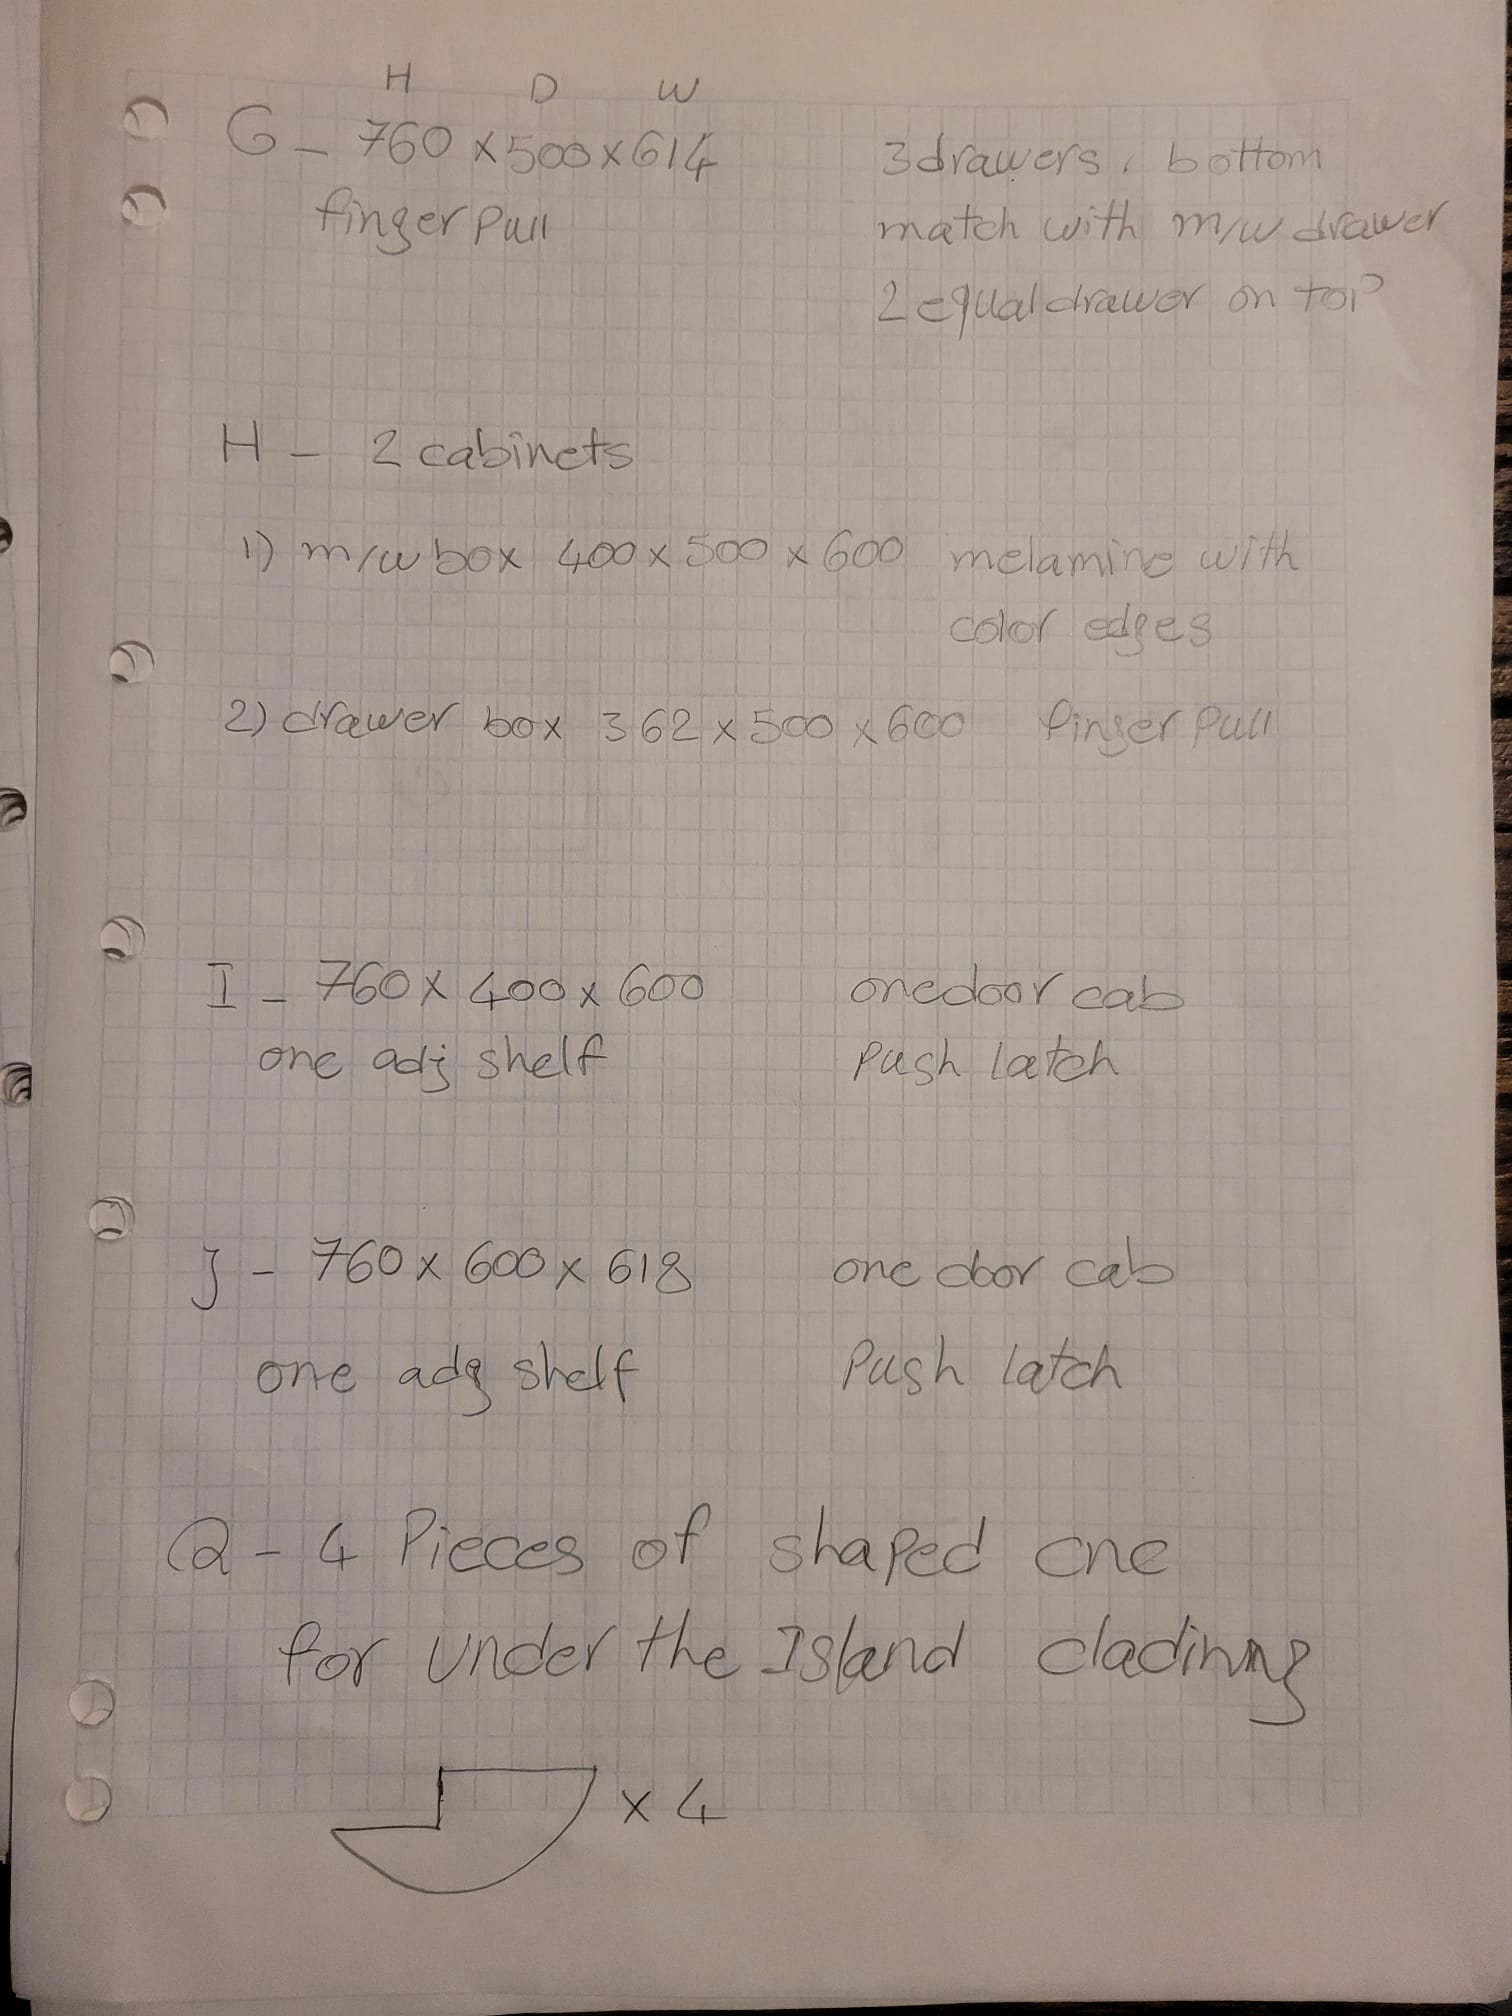 H D W
G - 760 x 500 x 614 3 drawers, bottom
finger Pull match with m/w drawer
2 equal drawer on top
H - 2 cabinets
1) m/w box 400 x 500 x 600 melamine with
color edges
2) drawer box 362 x 500 x 600 finger Pull
I - 760 x 400 x 600 one door cab
one adj shelf Push latch
J - 760 x 600 x 618 one door cab
one adj shelf Push latch
Q - 4 Pieces of shaped cnc
for under the Island cladining
x 4